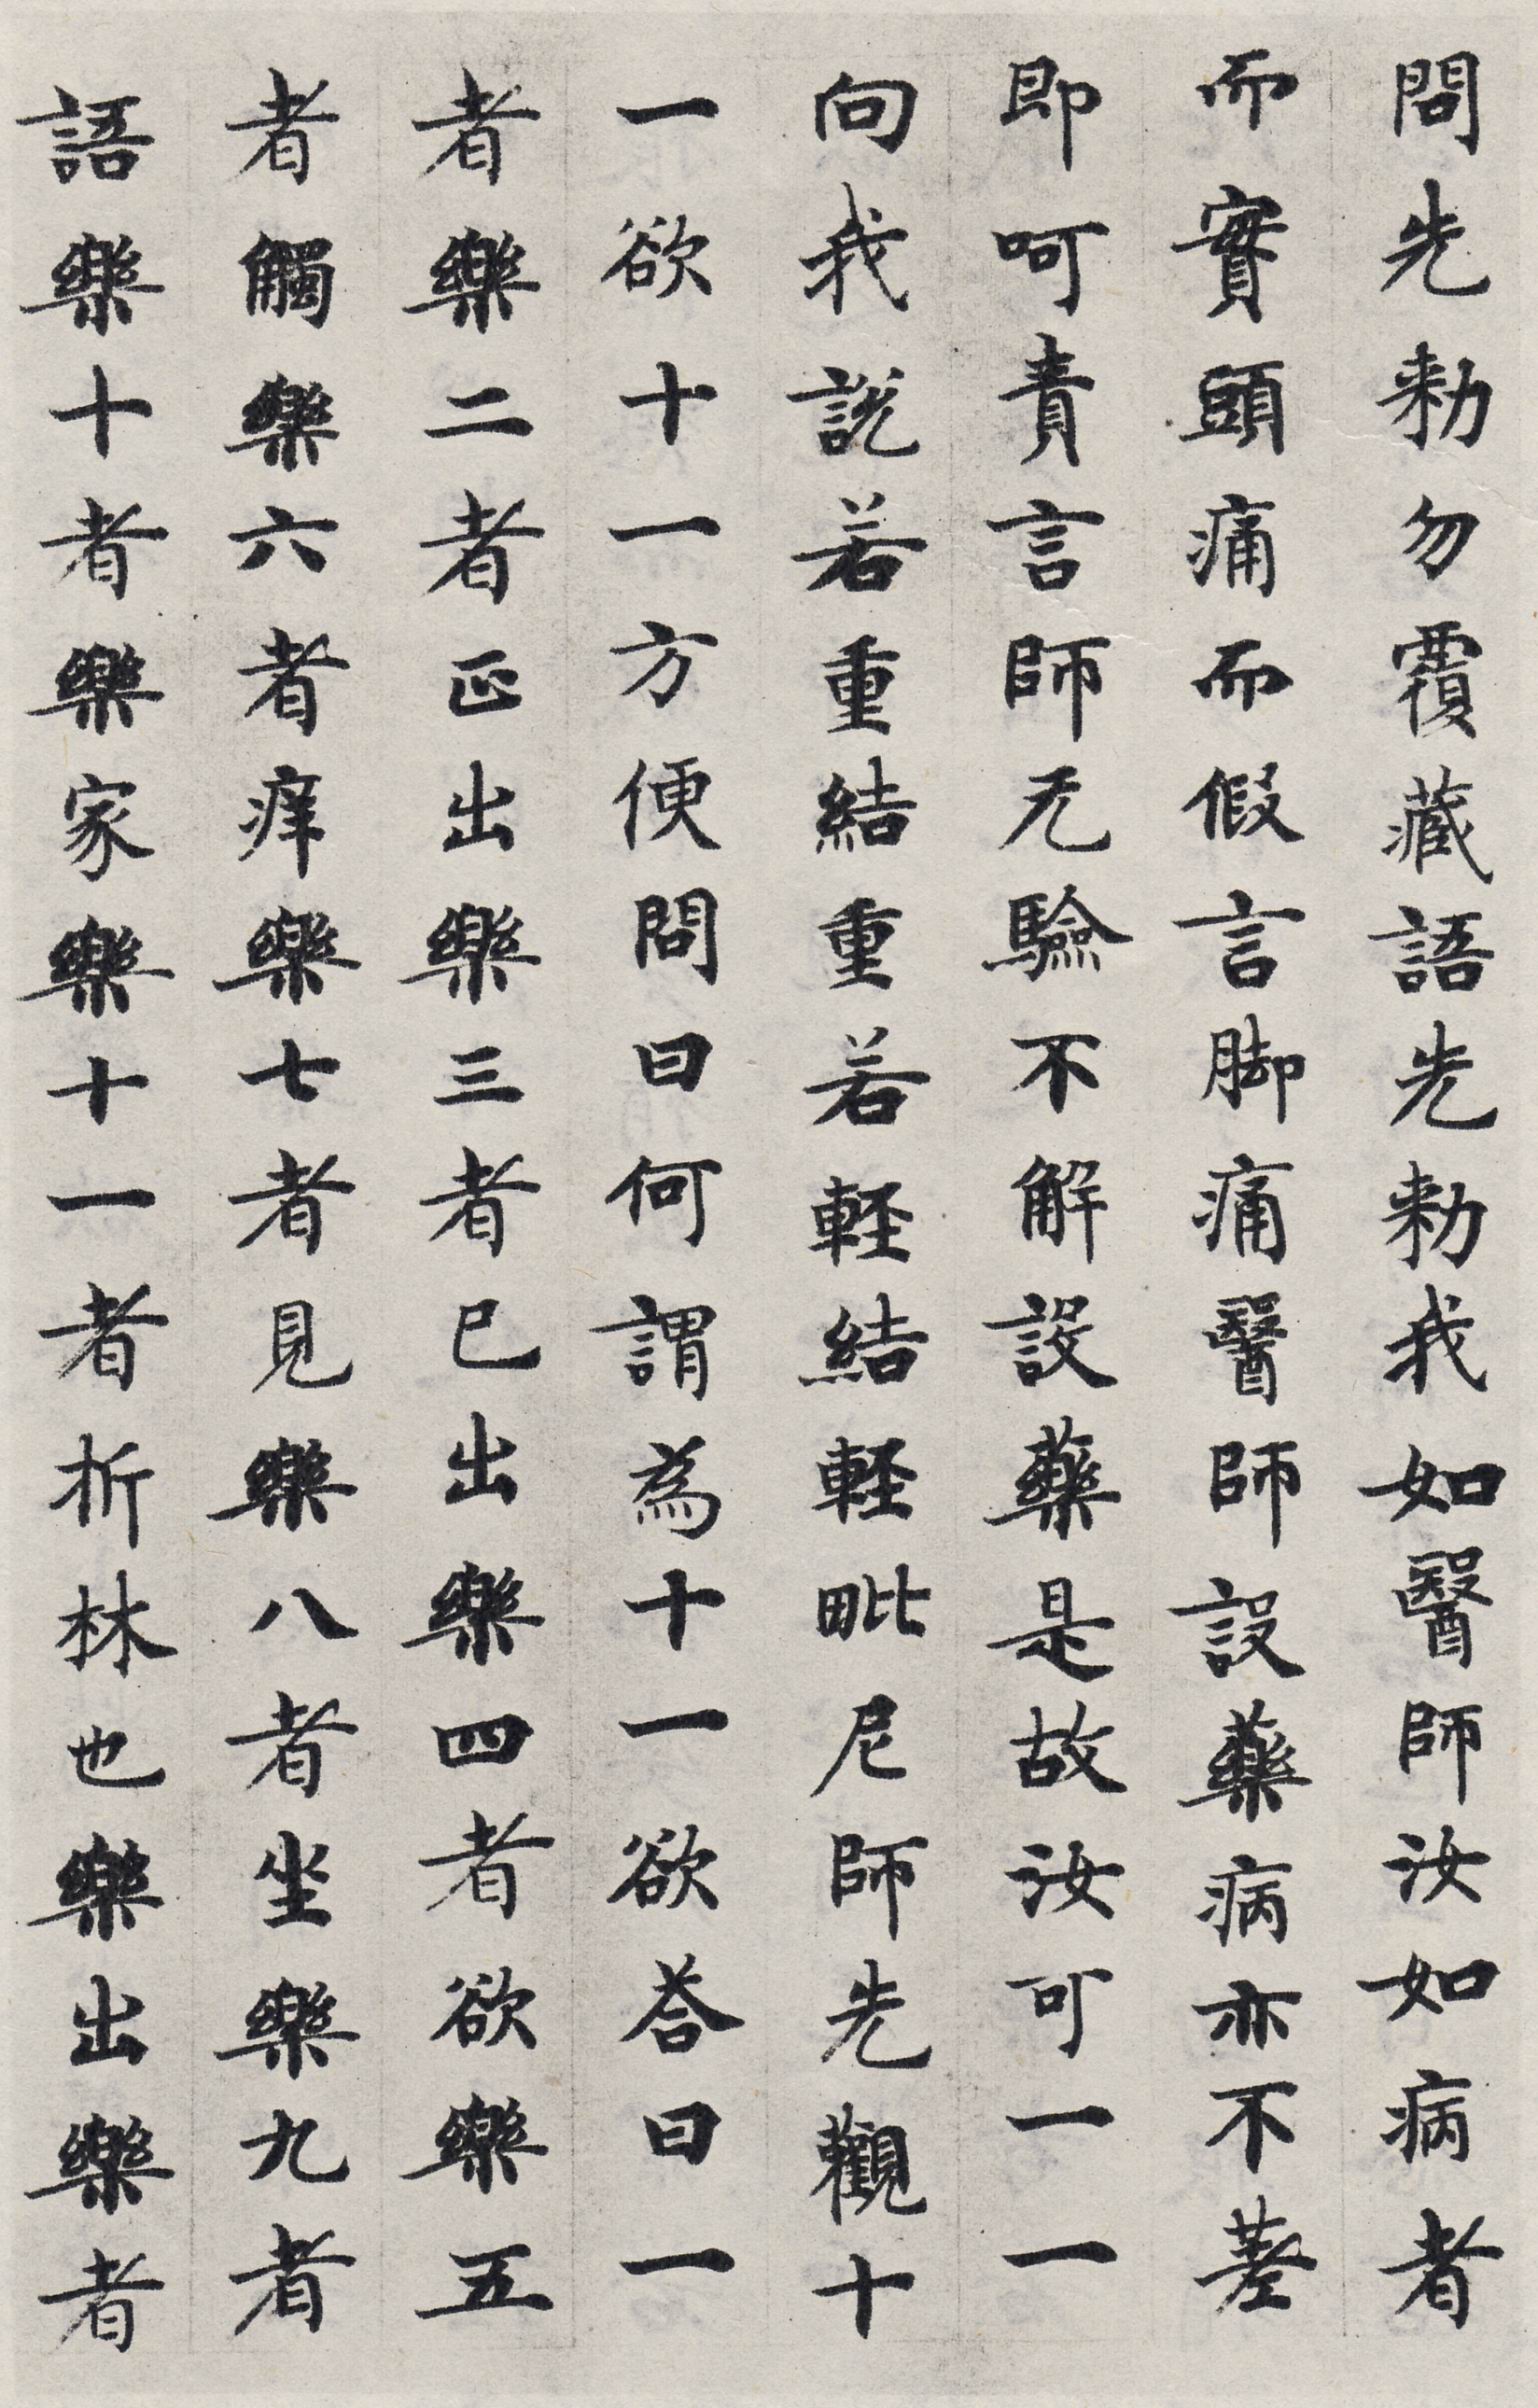 問先勑勿覆藏語先勑我如醫師汝如病者
而實頭痛而假言脚痛醫師設藥病亦不差
即呵責言師无驗不解設藥是故汝可一一
向我說若重結重若軽結軽毗尼師先觀十
一欲十一方便問曰何謂為十一欲荅曰一
者樂二者正出樂三者已出樂四者欲樂五
者觸樂六者痒樂七者見樂八者坐樂九者
語樂十者樂家樂十一者折林也樂出樂者